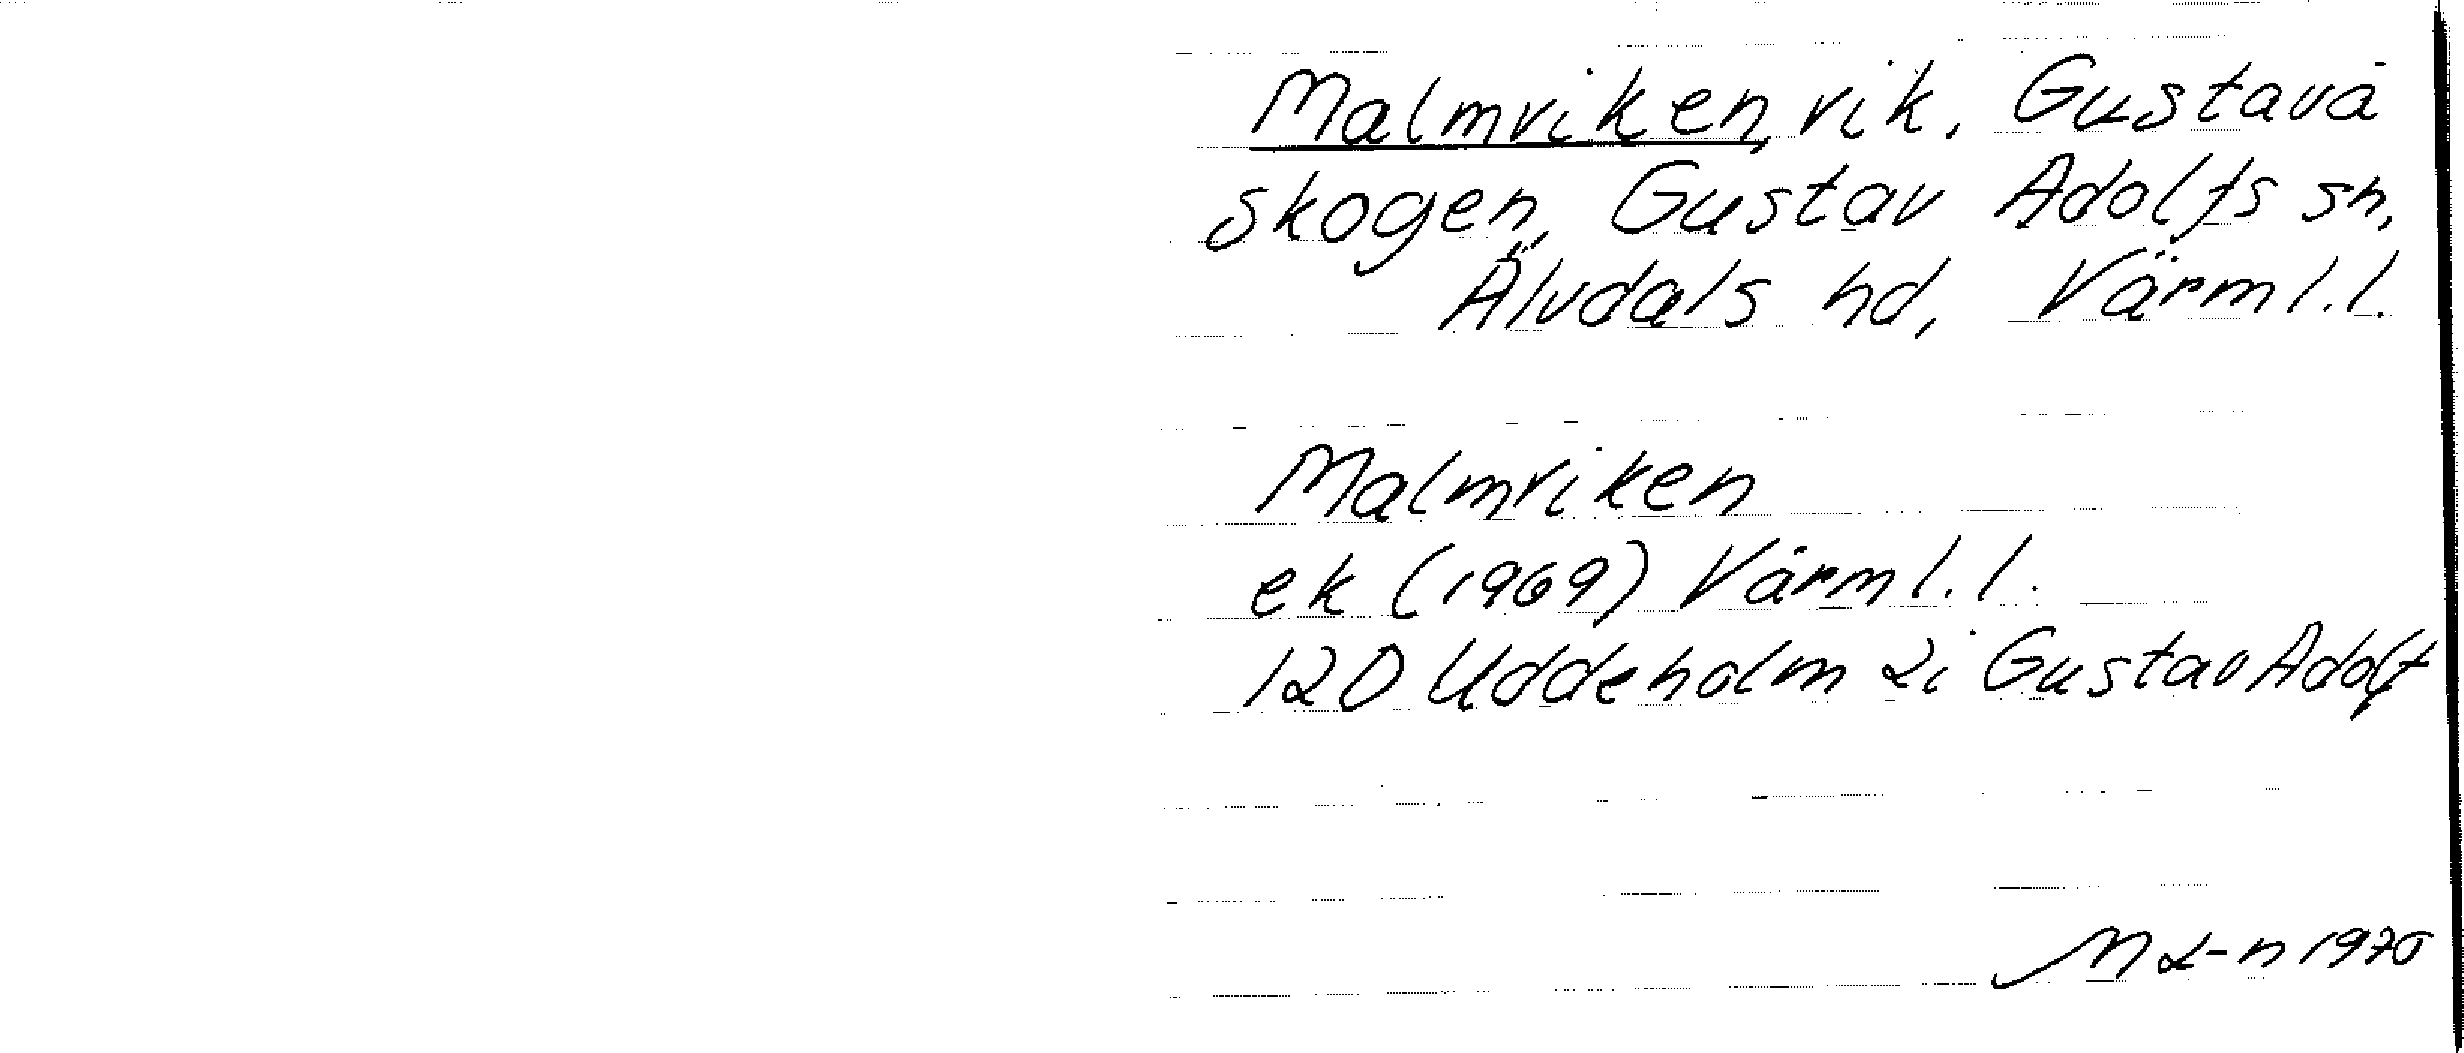 Malmviken, vik, Gustava
skogen, Gustav Adolfs sn,
Älvdals hd, Värml.l.
Malmviken
ek (1969) Värml.l.
12D Uddeholm 2i Gustav Adolf
1970